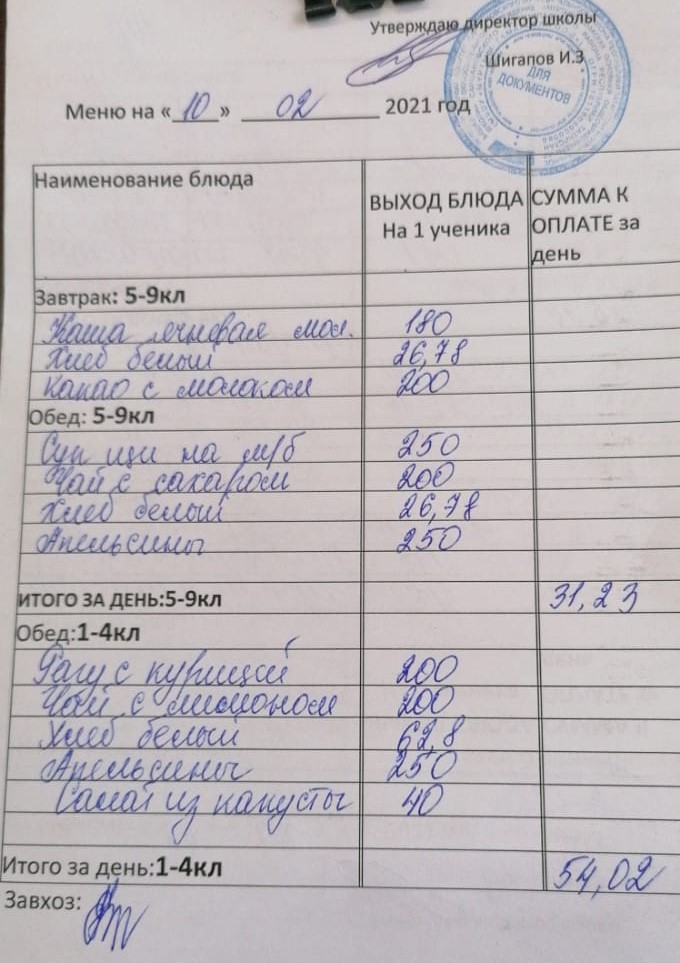 Утверждаю директор школы
Шигапов И.З
ДЛЯ
ДОКУМЕНТОВ
Меню на «10» 02 2021 год
Наименование блюда
ВЫХОД БЛЮДА СУММА К
На 1 ученика ОПЛАТЕ за
день
Завтрак: 5-9кл
Каша ячневая мол. 180
Хлеб белый 26,78
Какао с молоком 200
Обед: 5-9кл
Суп щи на м/б 250
Чай с сахаром 200
Хлеб белый 26,78
Апельсины 250
ИТОГО ЗА ДЕНЬ:5-9кл 31,23
Обед:1-4кл
Рагу с курицей 200
Чай с лимоном 200
Хлеб белый 62,8
Апельсины 250
Салат из капусты 40
Итого за день:1-4кл 54,02
Завхоз: